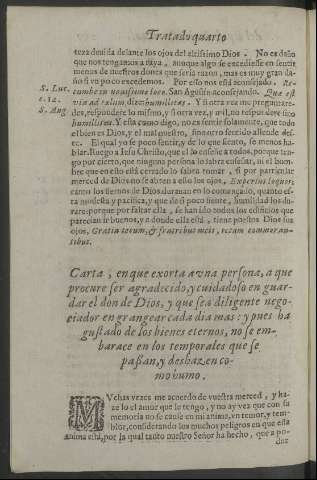 Tratado quarto
teza deuida delante los ojos del altissimo Dios. No es daño
que nos tengamos a raya, aunque algo se excediesse en sentir
menos de nuestros dones que seria razon, mas es muy gran da-
ño si vn poco excedemos. Por esso nos està aconsejado. Re-
S. Luc. cumbe in nouissimo loco. San Agustin aconsejando. Quæ est
c. 14. via ad cælum dize: humilitas. Y si otra vez me preguntare-
S. Aug. des, respondere lo mismo, y si otra vez, y mil, no respondere sino
humilitas. Y esta como digo, no es sentir solamente, que todo
el bien es Dios, y el mal nuestro, sino otro secreto allende des-
so. El qual yo se poco sentir, y de lo que siento, se menos ha-
blar. Ruego a Iesu Christo, que el lo enseñe a todos, porque ten-
go por cierto, que ninguna persona lo sabra enseñar, ni el hom-
bre que en esto està cerrado lo sabra tomar, si por particular
merced de Dios no se abren a ello los ojos, Expertus loquor:
tanto los sieruos de Dios duraran en lo começado, quanto es-
ta modesta y pacifica, y que de si poco siente, humildad los du-
rare: porque por faltar ella, se han ido todos los edificios que
parecian ir buenos, y a donde ella està, tiene puestos Dios sus
ojos, Gratia tecum, & fratribus meis, tecum commoran-
tibus.
Carta, en que exorta a vna persona, a que
procure ser agradecido, y cuidadoso en guar-
dar el don de Dios, y que sea diligente nego-
ciador en grangear cada dia mas: y pues ha
gustado de los bienes eternos, no se em-
barace en los temporales que se
passan, y deshaz, en co-
mo humo.
MVchas vezes me acuerdo de vuestra merced, y ha-
ze lo el amor que le tengo, y no ay vez que con su
memoria no se cause en mi animo, vn temor, y tem-
blor, considerando los muchos peligros en que essa
anima està, por la qual tanto nuestro Señor ha hecho, que a po-
der